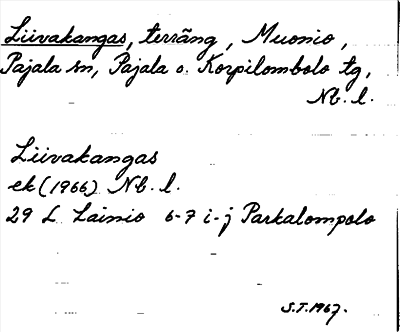 Liivakangas, terräng, Muonio,
Pajala sn, Pajala o. Korpilombolo tg,
Nb. l.
Liivakangas
ek (1966) Nb. l.
29 L Lainio 6-7 i-j Parkalompolo
S.T. 1967.